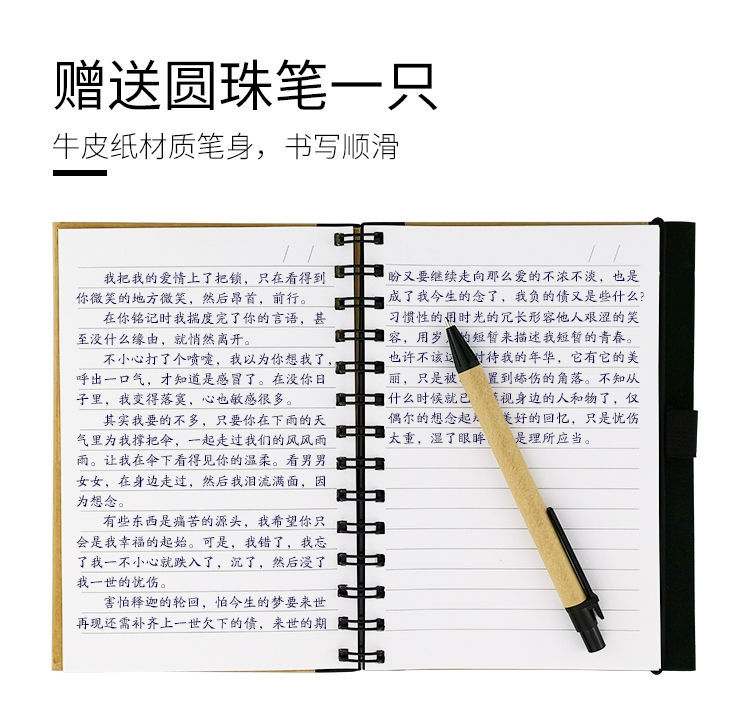 赠送圆珠笔一只
牛皮纸材质笔身，书写顺滑
我把我的爱情上了把锁，只在看得到
你微笑的地方微笑，然后昂首，前行。
在你铭记时我揣度完了你的言语，甚
至没什么缘由，就悄然离开。
不小心打了个喷嚏，我以为你想我了，
呼出一口气，才知道是感冒了。在没你日
子里，我变得落寞，心也敏感很多。
其实我要的不多，只要你在下雨的天
气里为我撑把伞，一起走过我们的风风雨
雨。让我在伞下看得见你的温柔。看男男
女女，在身边走过，然后我泪流满面，因
为想念。
有些东西是痛苦的源头，我希望你只
会是我幸福的起始。可是，我错了，我忘
了我一不小心就跌入了，沉了，然后浸了
我一世的忧伤。
害怕释迦的轮回，怕今生的梦要来世
再现还需补齐上一世欠下的债，来世的期
盼又要继续走向那么爱的不浓不淡，也是
成了我今生的念了，我负的债又是些什么?
习惯性的用时光的冗长形容他人艰涩的笑
容，用岁的短暂来描述我短暂的青春。
也许不该这时待我的年华，它有它的美
丽，只是被置到舔伤的角落。不知从
什么时候就已视身边的人和物了，仅
偶尔的想念起美好的回忆，只是忧伤
太重，湿了眼眸是理所应当。